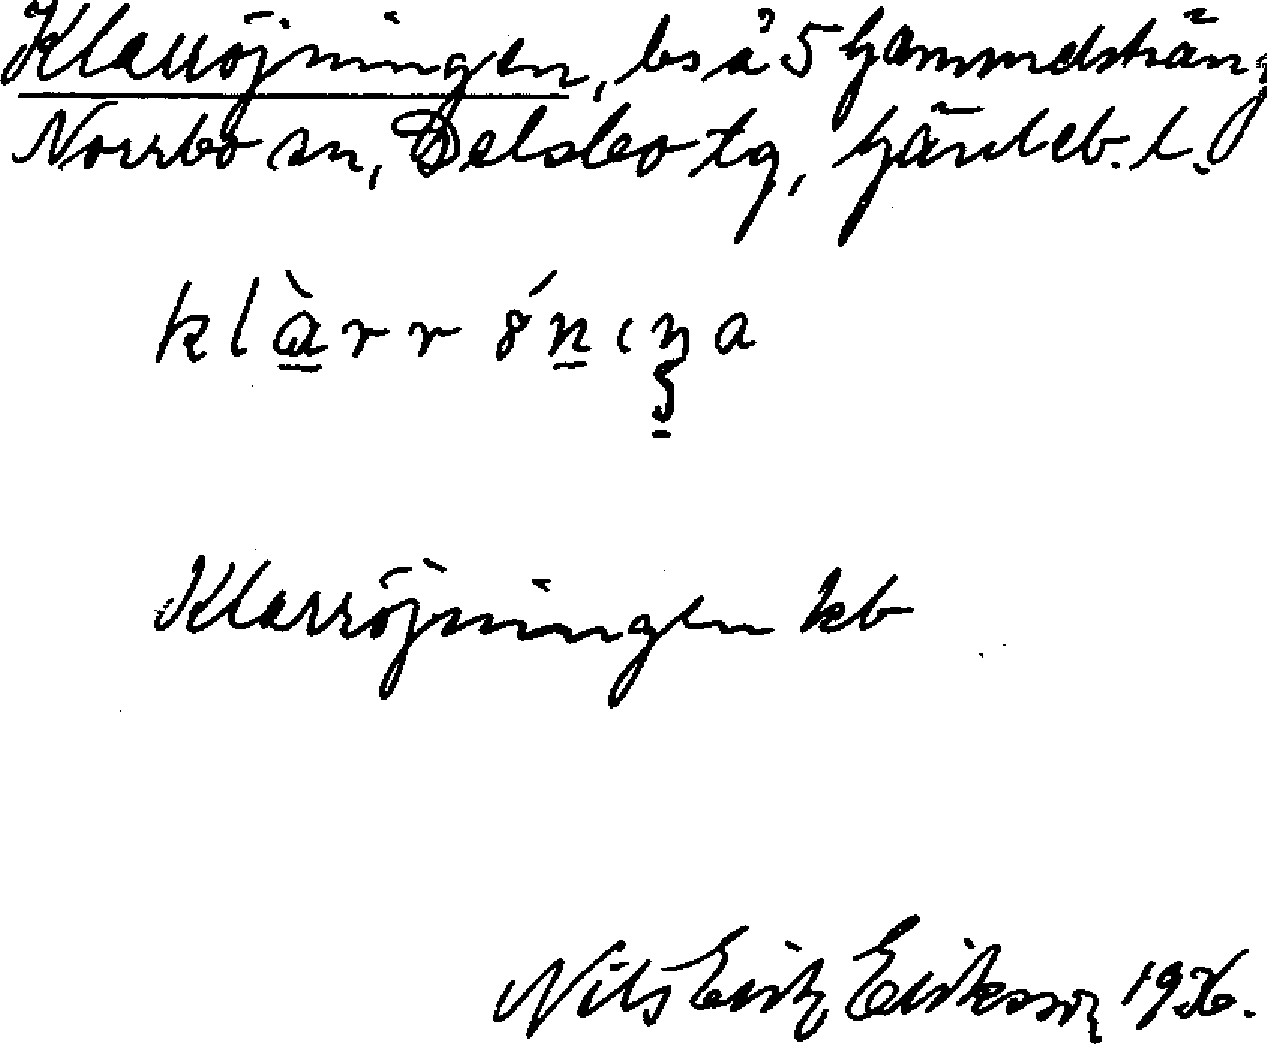 Klarröjningen, bs å 5 Gammelsträng
Norrbo sn, Delsbo tg, Gävleb. l.
klàrrö́niŋa
Klarröjningen kb
Nils Erik Eriksson 1936.